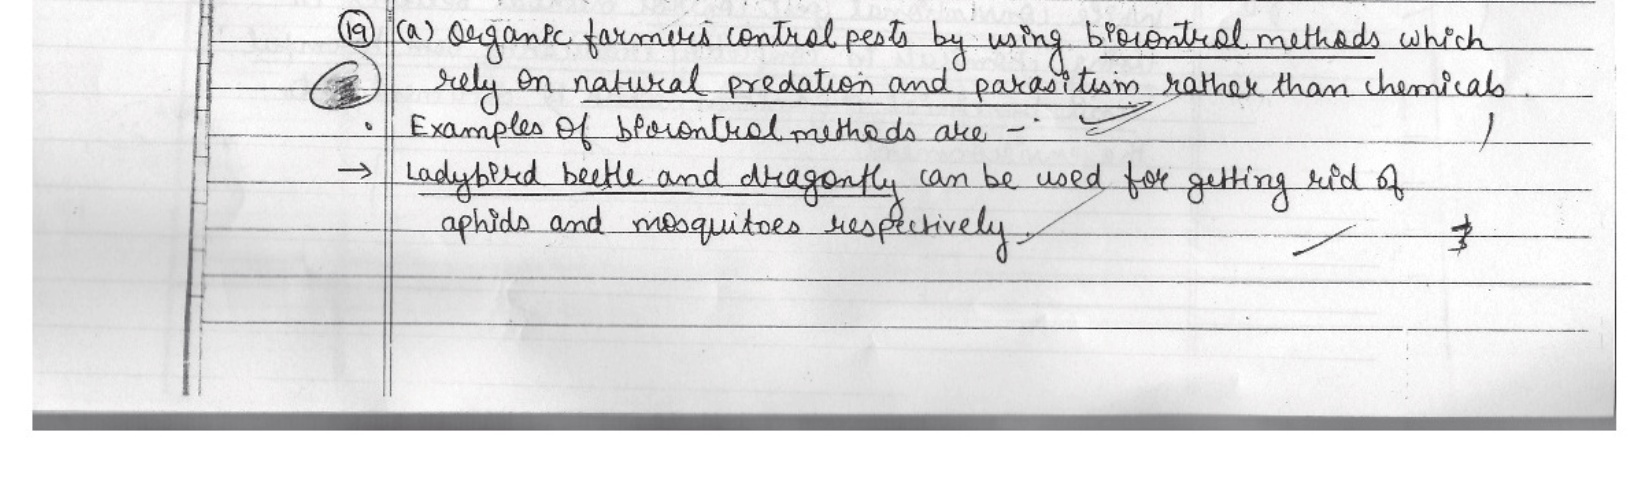 19 (a) Organic farmers control pests by using biocontrol methods which
rely on natural predation and parasitism rather than chemicals.
• Examples of biocontrol methods are -:
→ Ladybird beetle and dragonfly can be used for getting rid of
aphids and mosquitoes respectively.